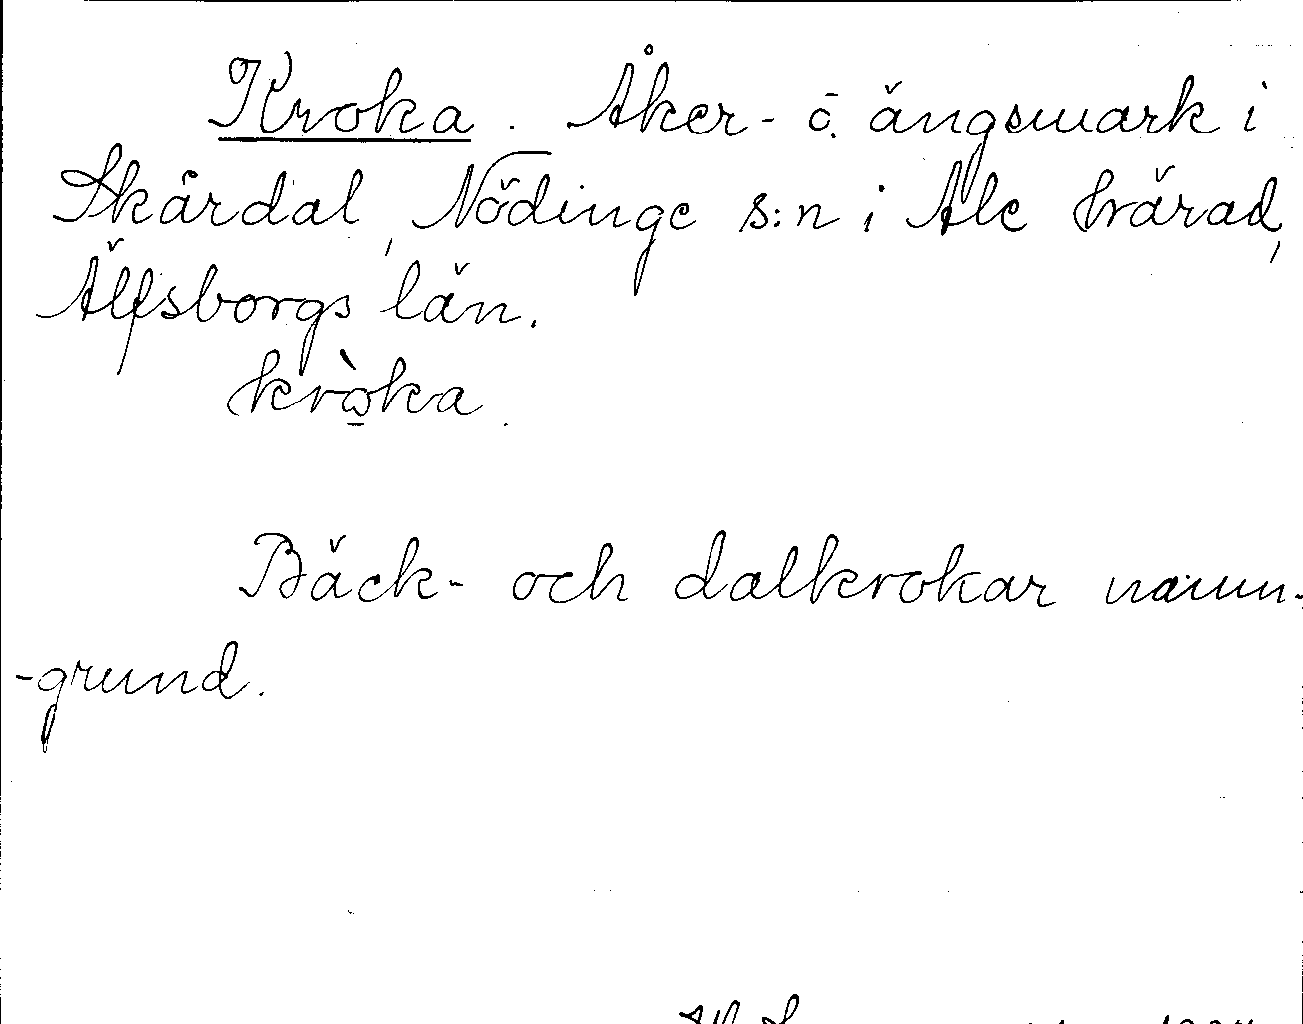 Kroka. Åker- o. ängsmark i
Skårdal, Nödinge s:n i Ale härad,
Älfsborgs län.
kròka.
Bäck- och dalkrokar namn-
-grund.